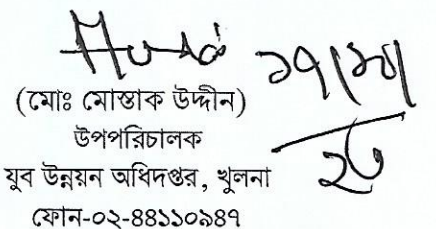 (মোঃ মোস্তাক উদ্দীন)
উপপরিচালক
যুব উন্নয়ন অধিদপ্তর, খুলনা
ফোন-০২-৪৪১১০৯৪৭